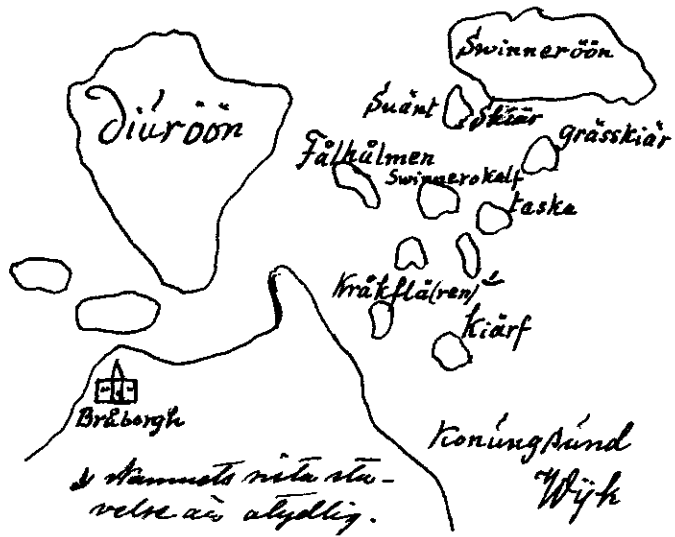 Swinneröön
Diúröön
Suänt Skiär
grässkiär
Fålhålmen
Swinnerokalf
taska
Kråkflä(ren)
kiärf
Bråborgh
Konúngsúnd
Wÿk
Namnets sista sta-
velse är otydlig.